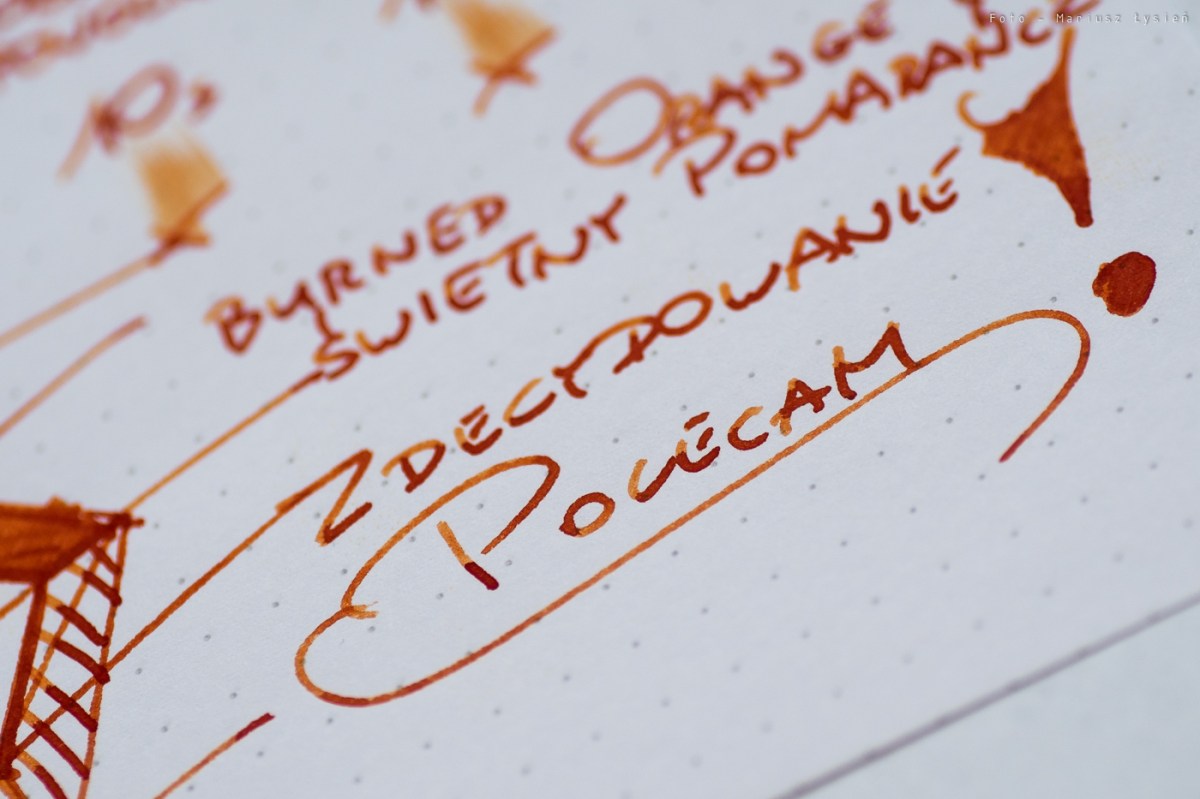 Foto - Mariusz Łysień
10s
BURNED ORANGE
ŚWIETNY POMARAŃCZ
ZDECYDOWANIE
POLECAM!